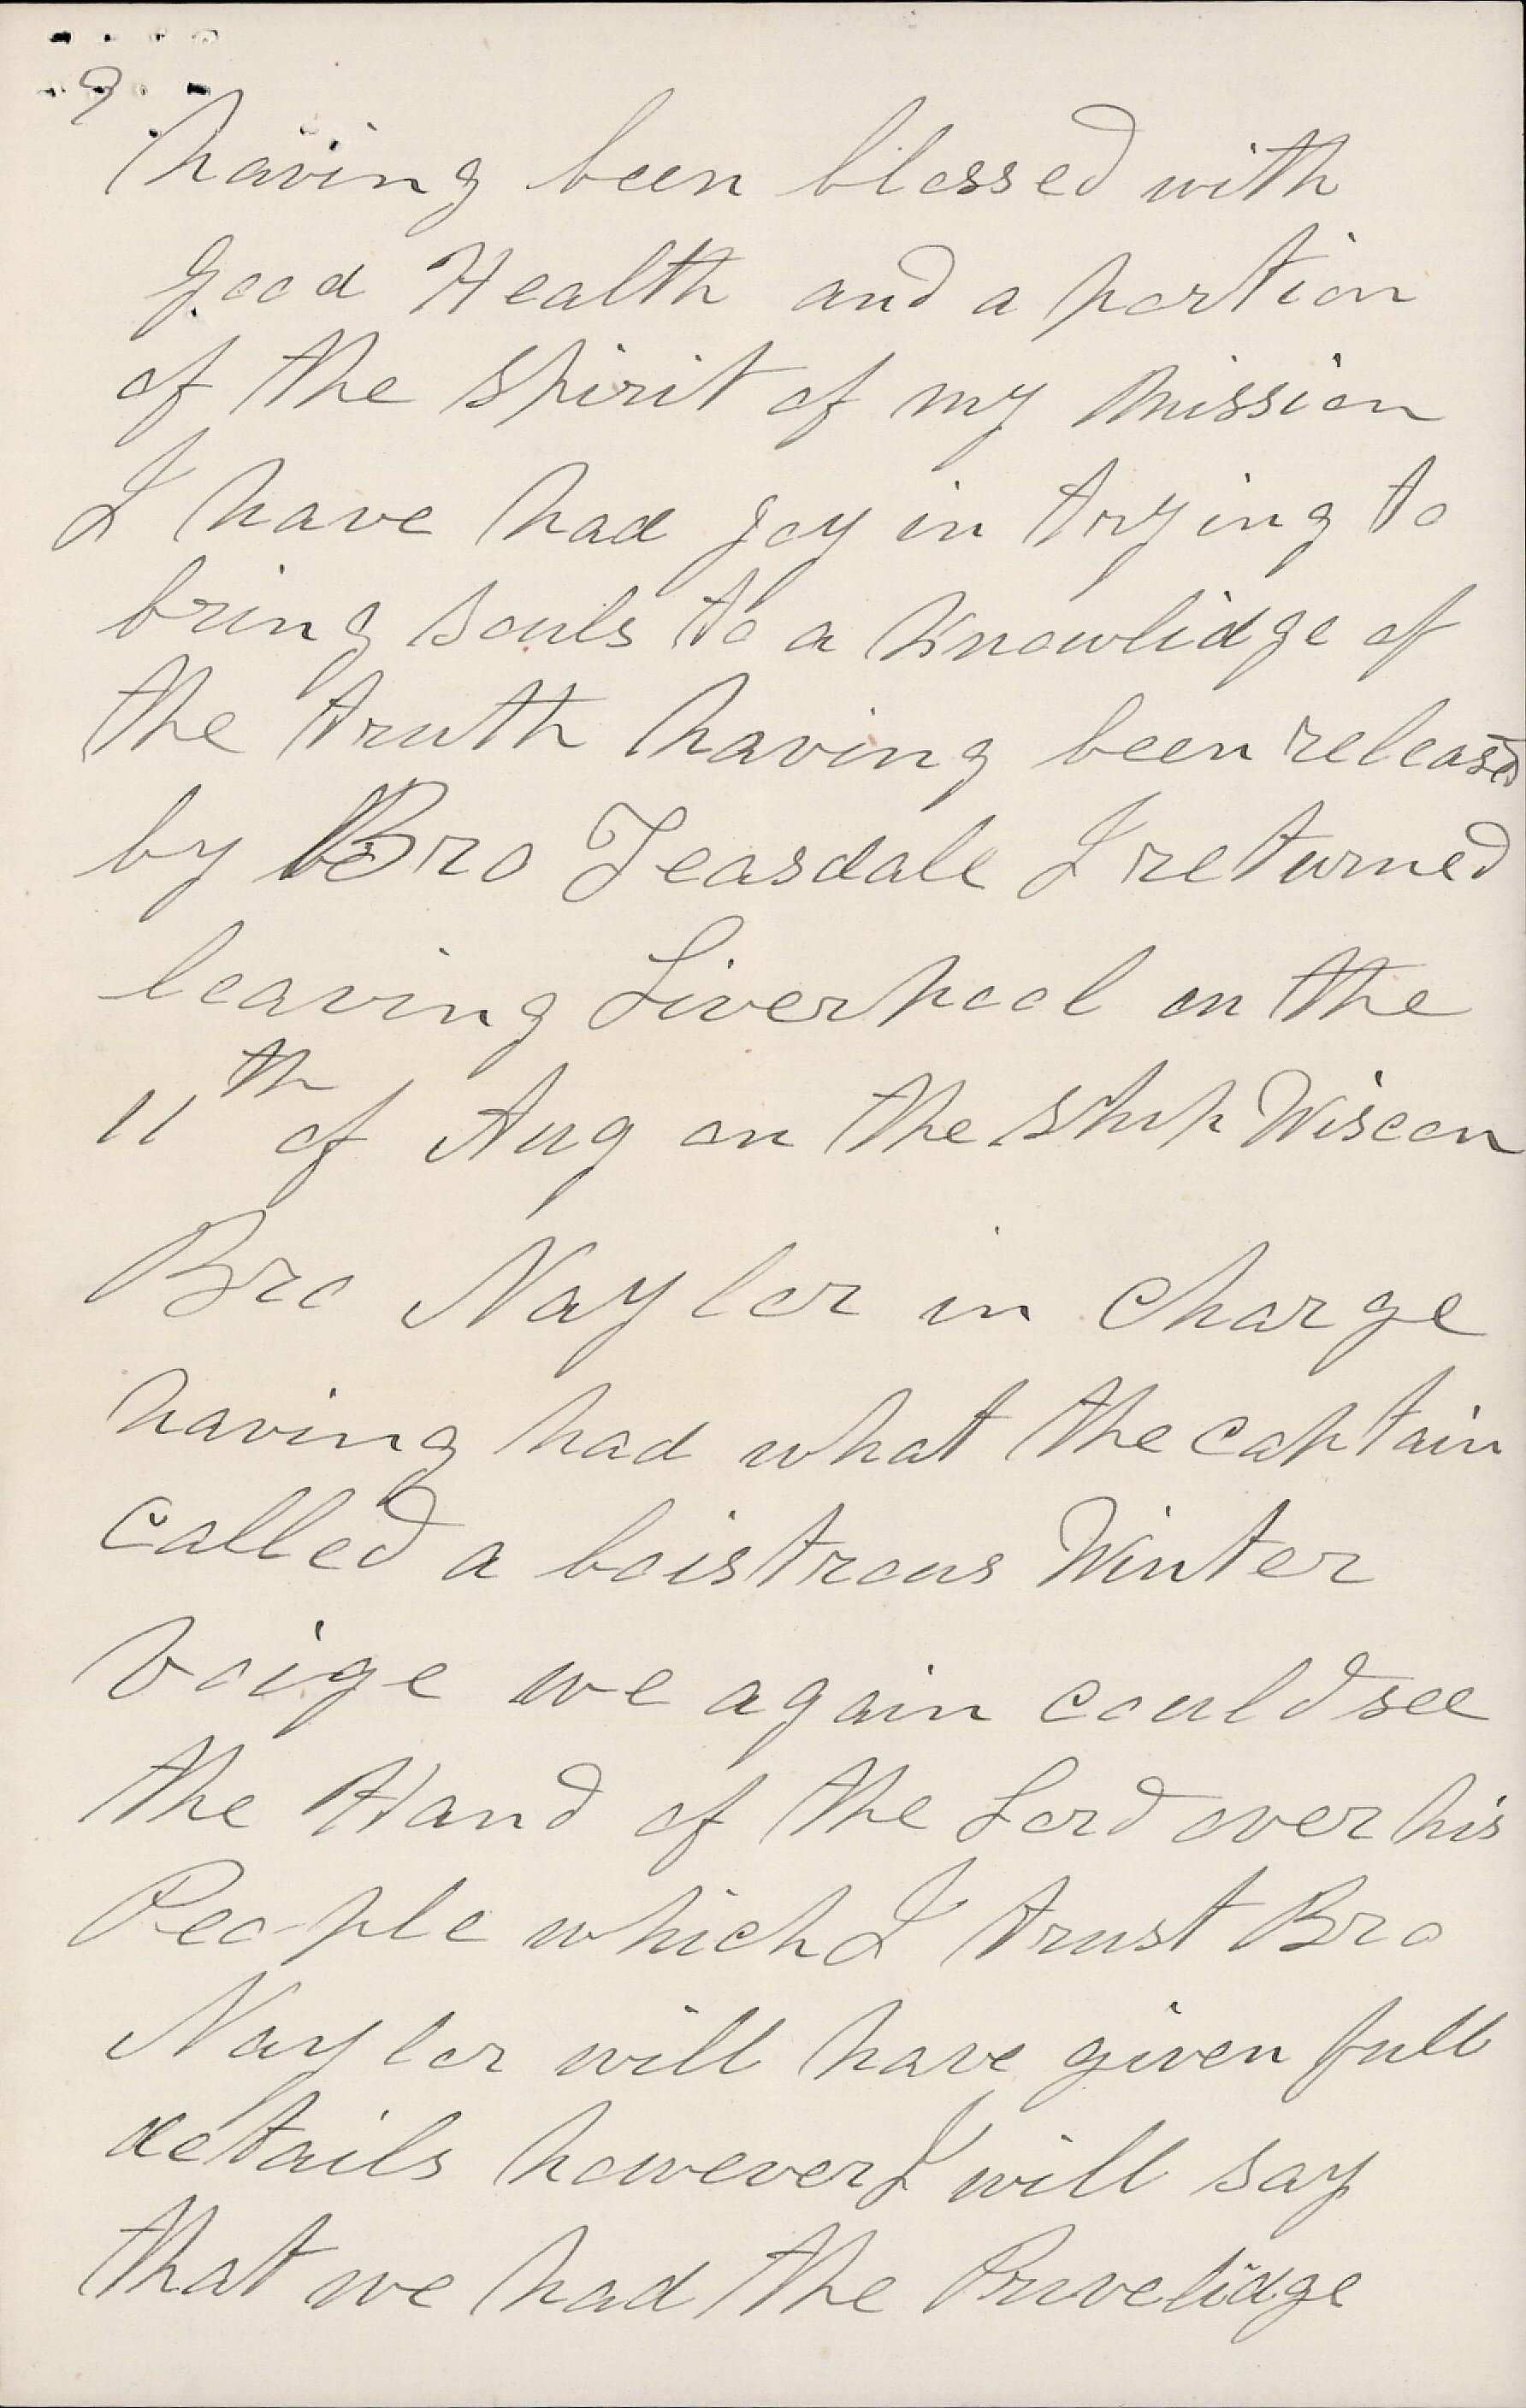 9
having been blessed with
good Health and a portion
of the spirit of my mission
I have had joy in trying to
bring souls to a knowlidge of
the truth having been released
by Bro Teasdale I returned
leaving Liverpool on the
11th of Aug on the ship Wiscon
Bro Naylor in charge
having had what the captain
called a boistrous Winter
voige we again could see
the Hand of the Lord over his
People which I trust Bro
Naylor will have given full
details however I will say
that we had the Privelidge